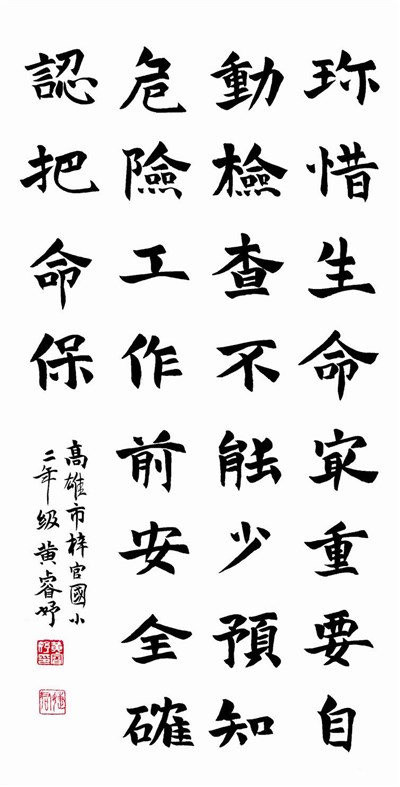 珎惜生命冣重要自
動檢查不能少預知
危險工作前安全確
認把命保
高雄市梓官國小
二年級黃睿妤